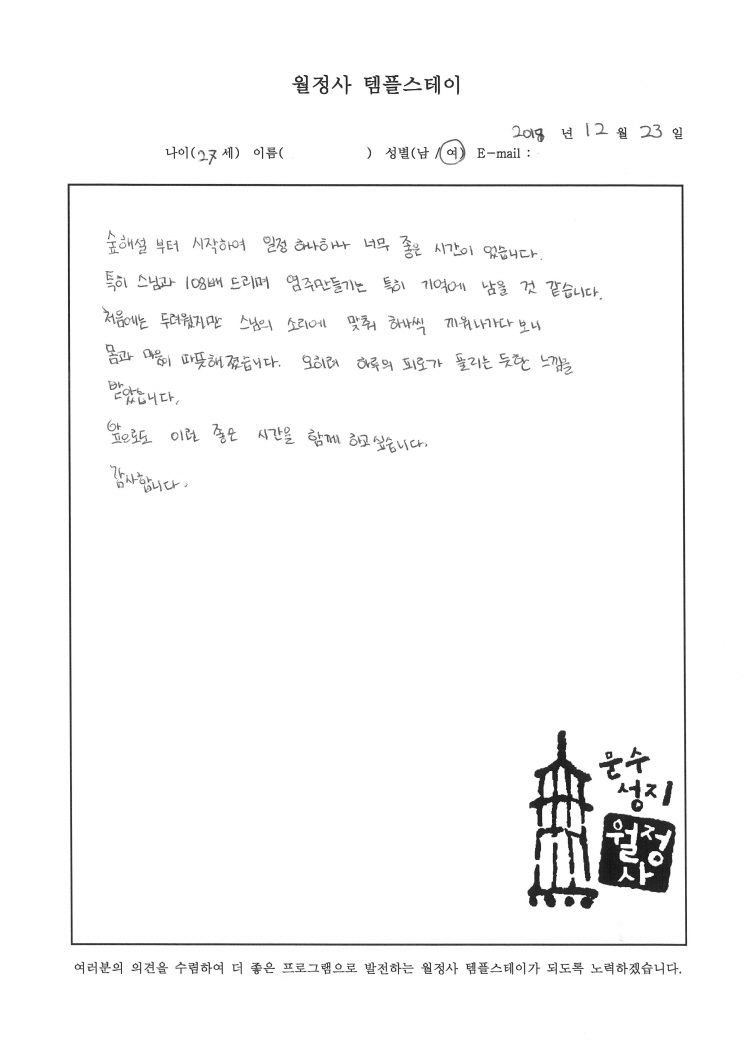 월정사 템플스테이
2018 년 12 월 23 일
나이(27세) 이름( ) 성별(남 / 여) E-mail :
숲해설 부터 시작하여 일정 하나하나 너무 좋은 시간이 었습니다.
특히 스님과 108배 드리며 염주만들기는 특히 기억에 남을 것 같습니다.
처음에는 두려웠지만 스님의 소리에 맞춰 하나씩 끼워나가다 보니
몸과 마음이 따뜻해졌습니다. 오히려 하루의 피로가 풀리는 듯한 느낌을
받았습니다.
앞으로도 이런 좋은 시간을 함께 하고싶습니다.
감사합니다.
문수
성지
월정
사
여러분의 의견을 수렴하여 더 좋은 프로그램으로 발전하는 월정사 템플스테이가 되도록 노력하겠습니다.